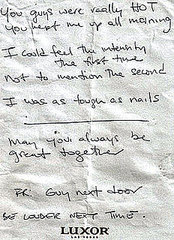 You guys were really HOT
You kept me up all morning
I could feel the intensity
the first time
not to mention the second
I was as tough as nails
May you always be
great together
FR: Guy next door
BE LOUDER NEXT TIME.
LUXOR
LAS VEGAS